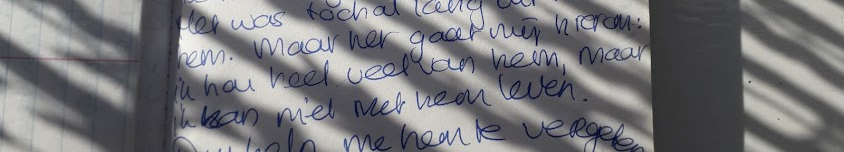 Het was toch al lang
hem. Maar het gaat mij hierom:
ik hou heel veel van hem, maar
ik kan niet met hem leven.
help me hem te vergeten